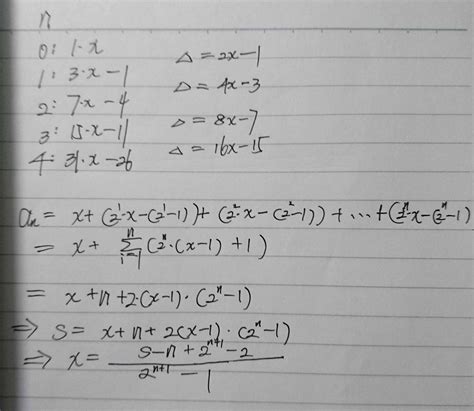 n
0: 1·x
1: 3·x−1 Δ=2x−1
2: 7·x−4 Δ=4x−3
3: 15·x−11 Δ=8x−7
4: 31·x−26 Δ=16x−15
aₙ = x+(2¹·x−(2¹−1))+(2²·x−(2²−1))+⋯+(2ⁿ·x−(2ⁿ−1))
= x+ Σᵢ₌₁ⁿ (2ⁿ·(x−1)+1)
= x+n+2·(x−1)·(2ⁿ−1)
⇒ S= x+n+2(x−1)·(2ⁿ−1)
⇒ x= (S−n+2ⁿ⁺¹−2)/(2ⁿ⁺¹−1)